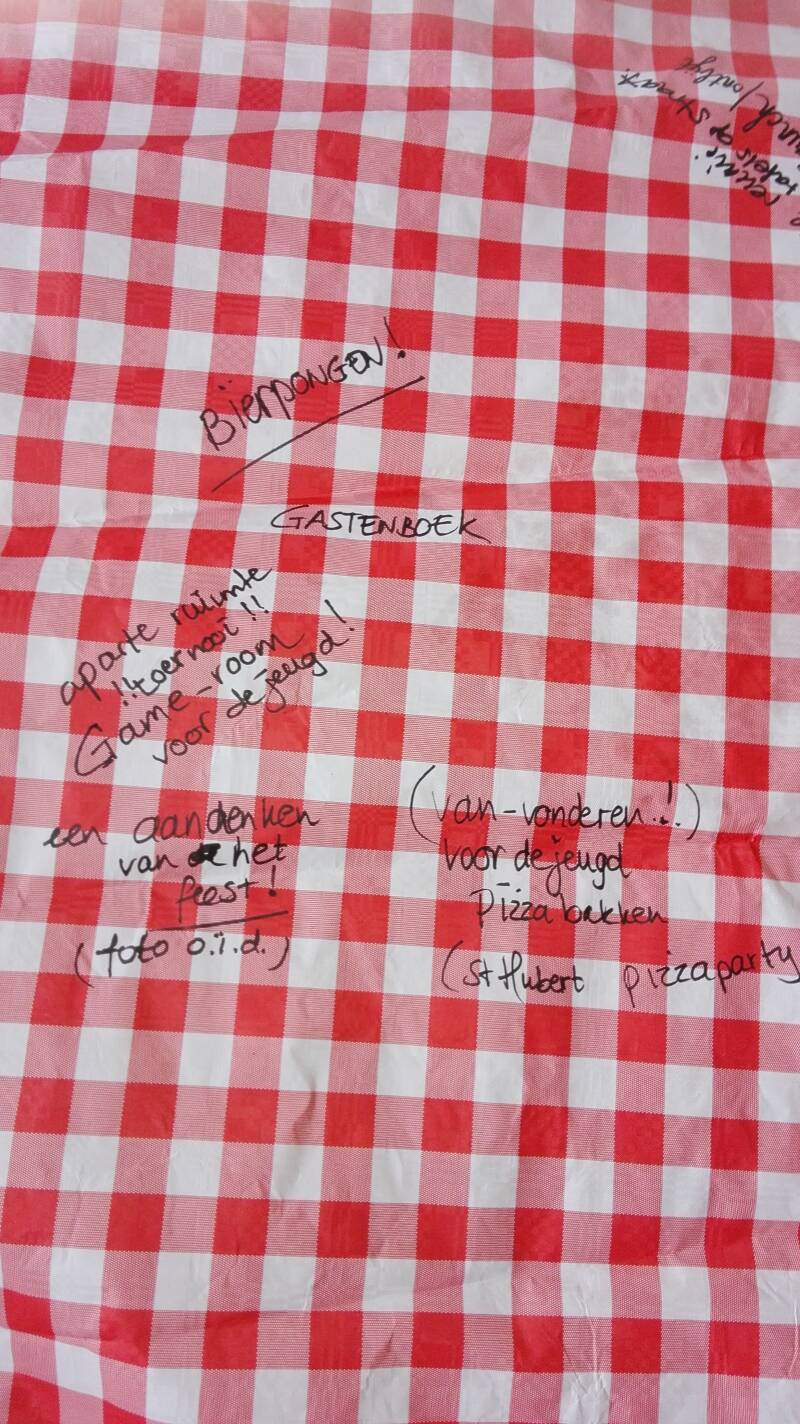 reünie
tafels op straat.
Bierpongen!
GASTENBOEK
aparte ruimte
!!toernooi!!
Game-room
voor de jeugd!
een aandenken
van het
feest!
(foto o.i.d.)
(van-vonderen!!)
voor de jeugd
Pizza bakken
(St Hubert pizzaparty